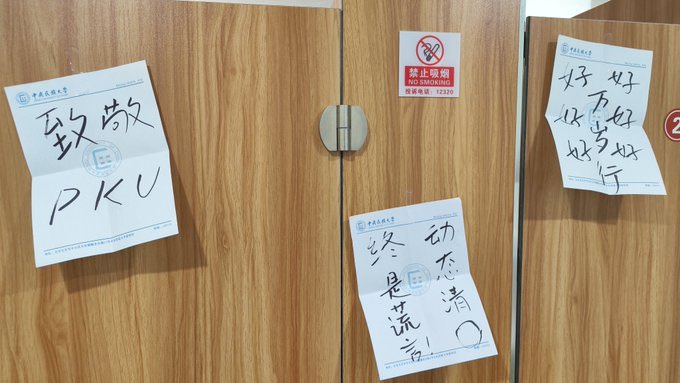 中央民族大学
致敬
PKU
禁止吸烟
NO SMOKING
投诉电话：12320
中央民族大学
动态清〇
终是荒言!
中央民族大学
好好
万
好好
岁
好好
行
2